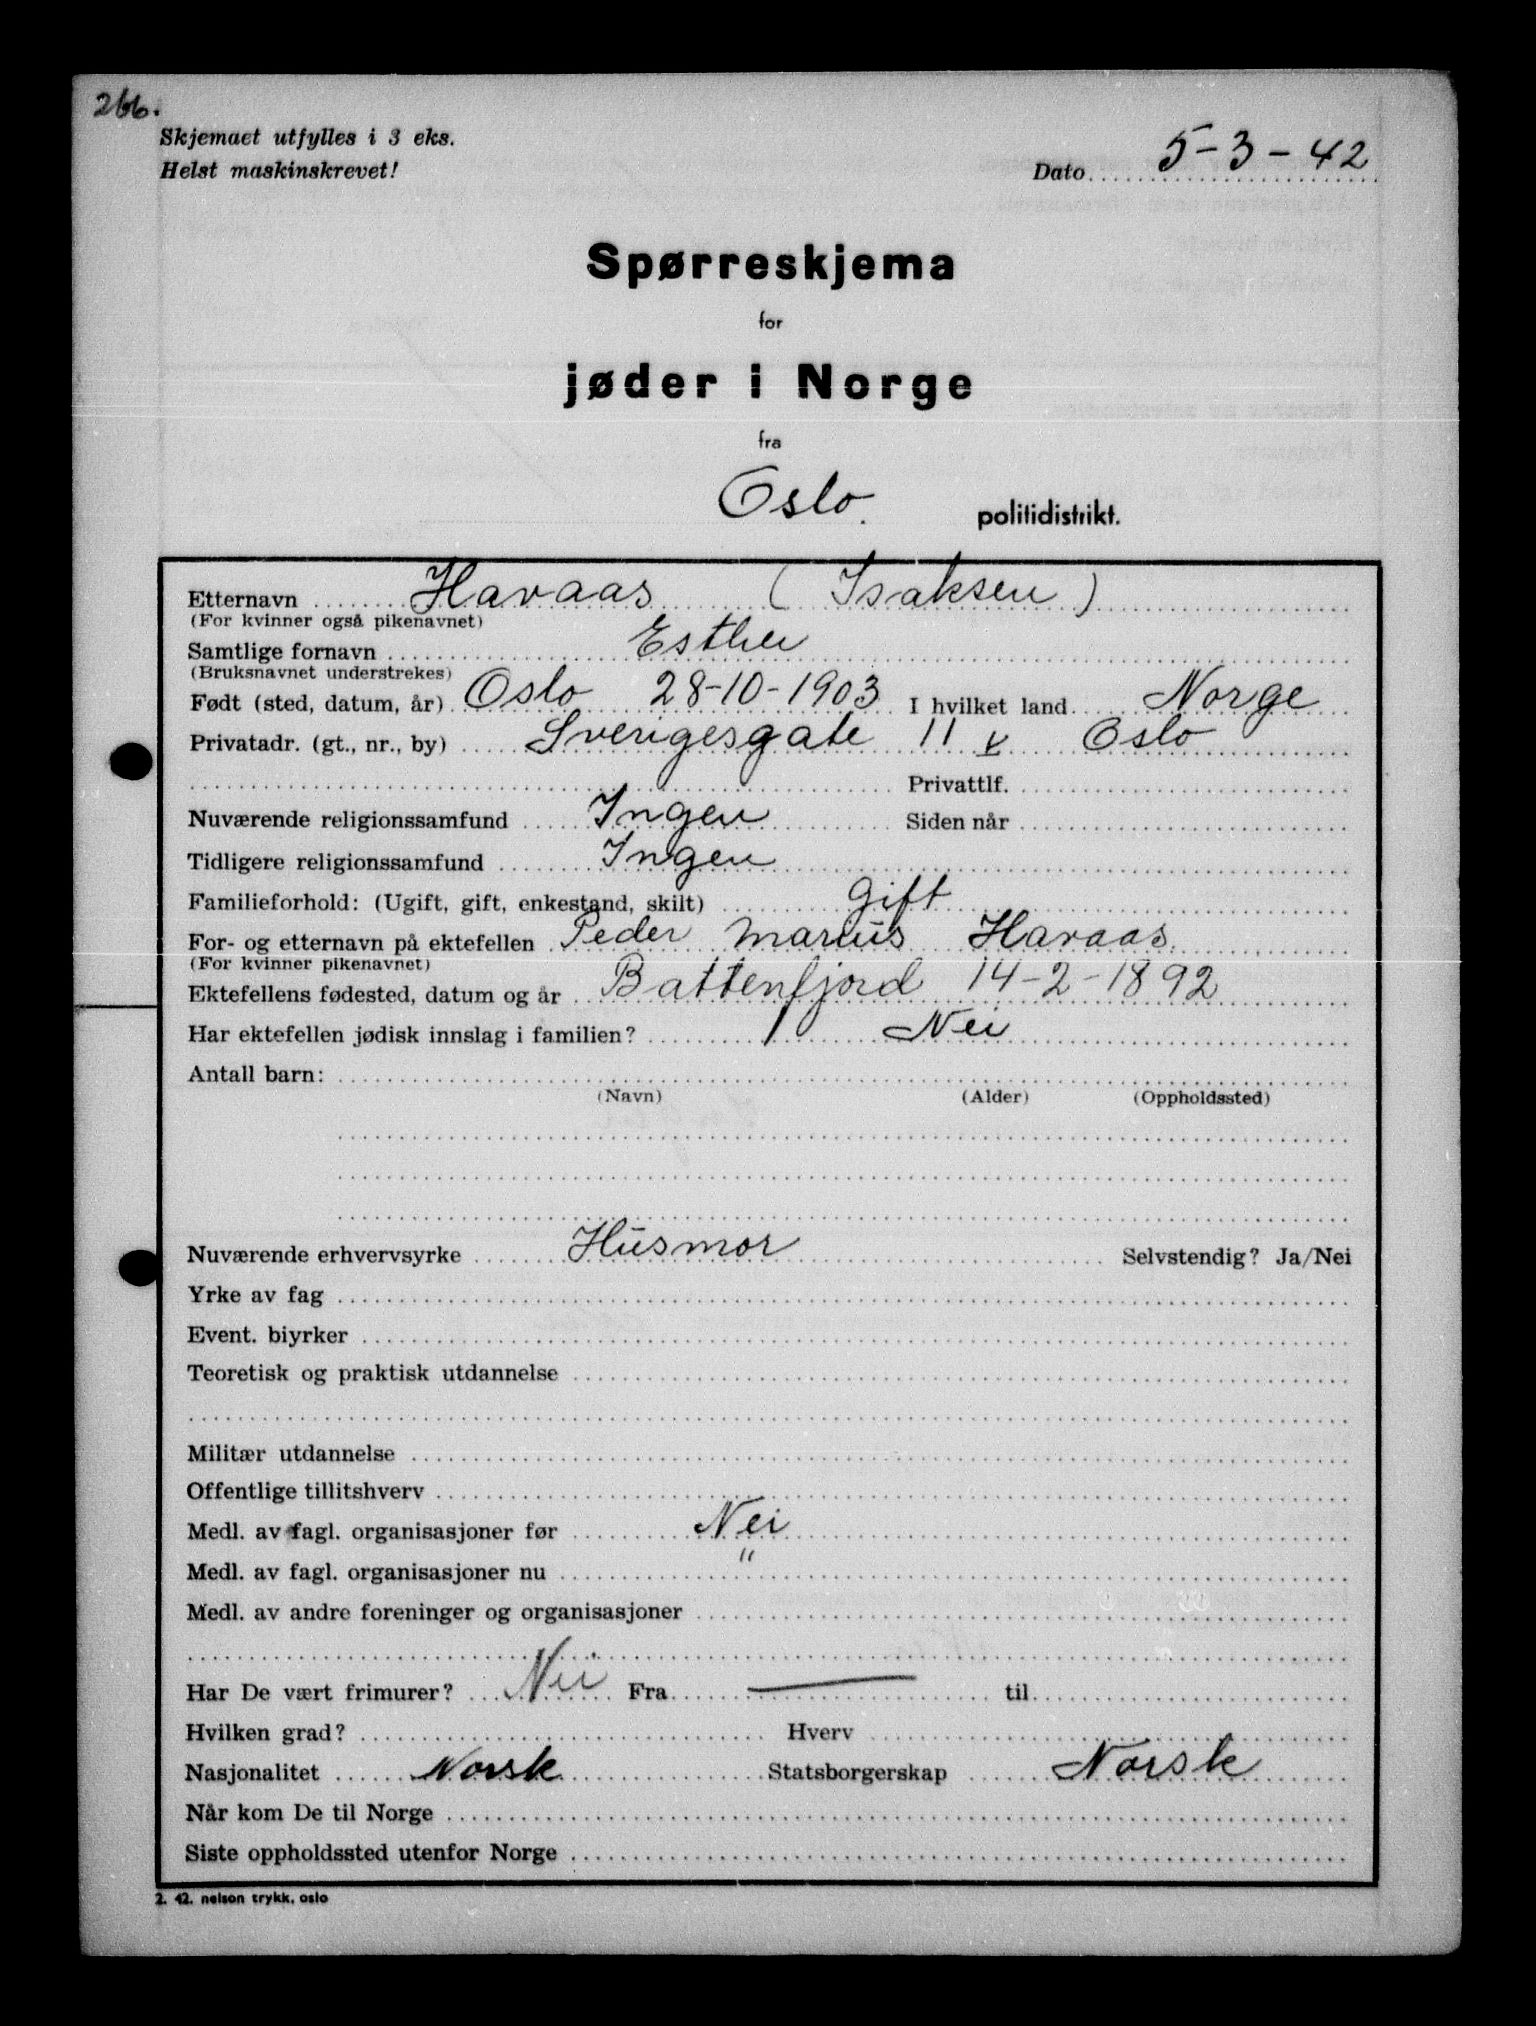 266.
Skjemaet utfylles i 3 eks.
Helst maskinskrevet!
Dato 5-3-42
Spørreskjema
for
jøder i Norge
fra
Oslo. politidistrikt.
Etternavn Havaas (Isaksen)
(For kvinner også pikenavnet)
Samtlige fornavn Esther
(Bruksnavnet understrekes)
Født (sted, datum, år) Oslo 28-10-1903 I hvilket land Norge
Privatadr. (gt., nr., by) Sverigesgate 11 v Oslo
Privattlf.
Nuværende religionssamfund Ingen Siden når
Tidligere religionssamfund Ingen
Familieforhold: (Ugift, gift, enkestand, skilt) gift
For- og etternavn på ektefellen Peder Marius Havaas.
(For kvinner pikenavnet)
Ektefellens fødested, datum og år Battenfjord 14-2-1892
Har ektefellen jødisk innslag i familien? Nei
Antall barn:
(Navn) (Alder) (Oppholdssted)
Nuværende erhvervsyrke Husmor Selvstendig? Ja/Nei
Yrke av fag
Event. biyrker
Teoretisk og praktisk utdannelse
Militær utdannelse
Offentlige tillitshverv
Medl. av fagl. organisasjoner før Nei
Medl. av fagl. organisasjoner nu "
Medl. av andre foreninger og organisasjoner
Har De vært frimurer? Nei Fra — til
Hvilken grad? Hverv
Nasjonalitet Norsk Statsborgerskap Norsk
Når kom De til Norge
Siste oppholdssted utenfor Norge
2. 42. nelson trykk, oslo